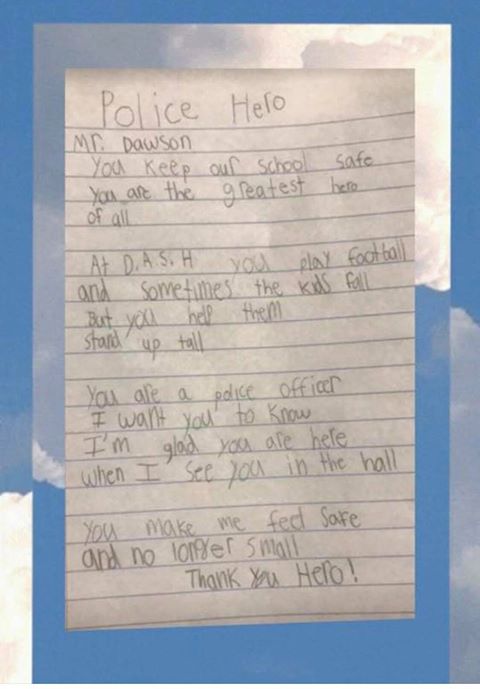 Police Hero
Mr. Dawson
You keep our school safe
You are the greatest hero
of all
At D.A.S.H you play football
and sometimes the kids fall
But you help them
stand up tall
You are a police officer
I want you to know
I'm glad you are here
when I see you in the hall
You make me feel safe
and no longer small
Thank You Hero!